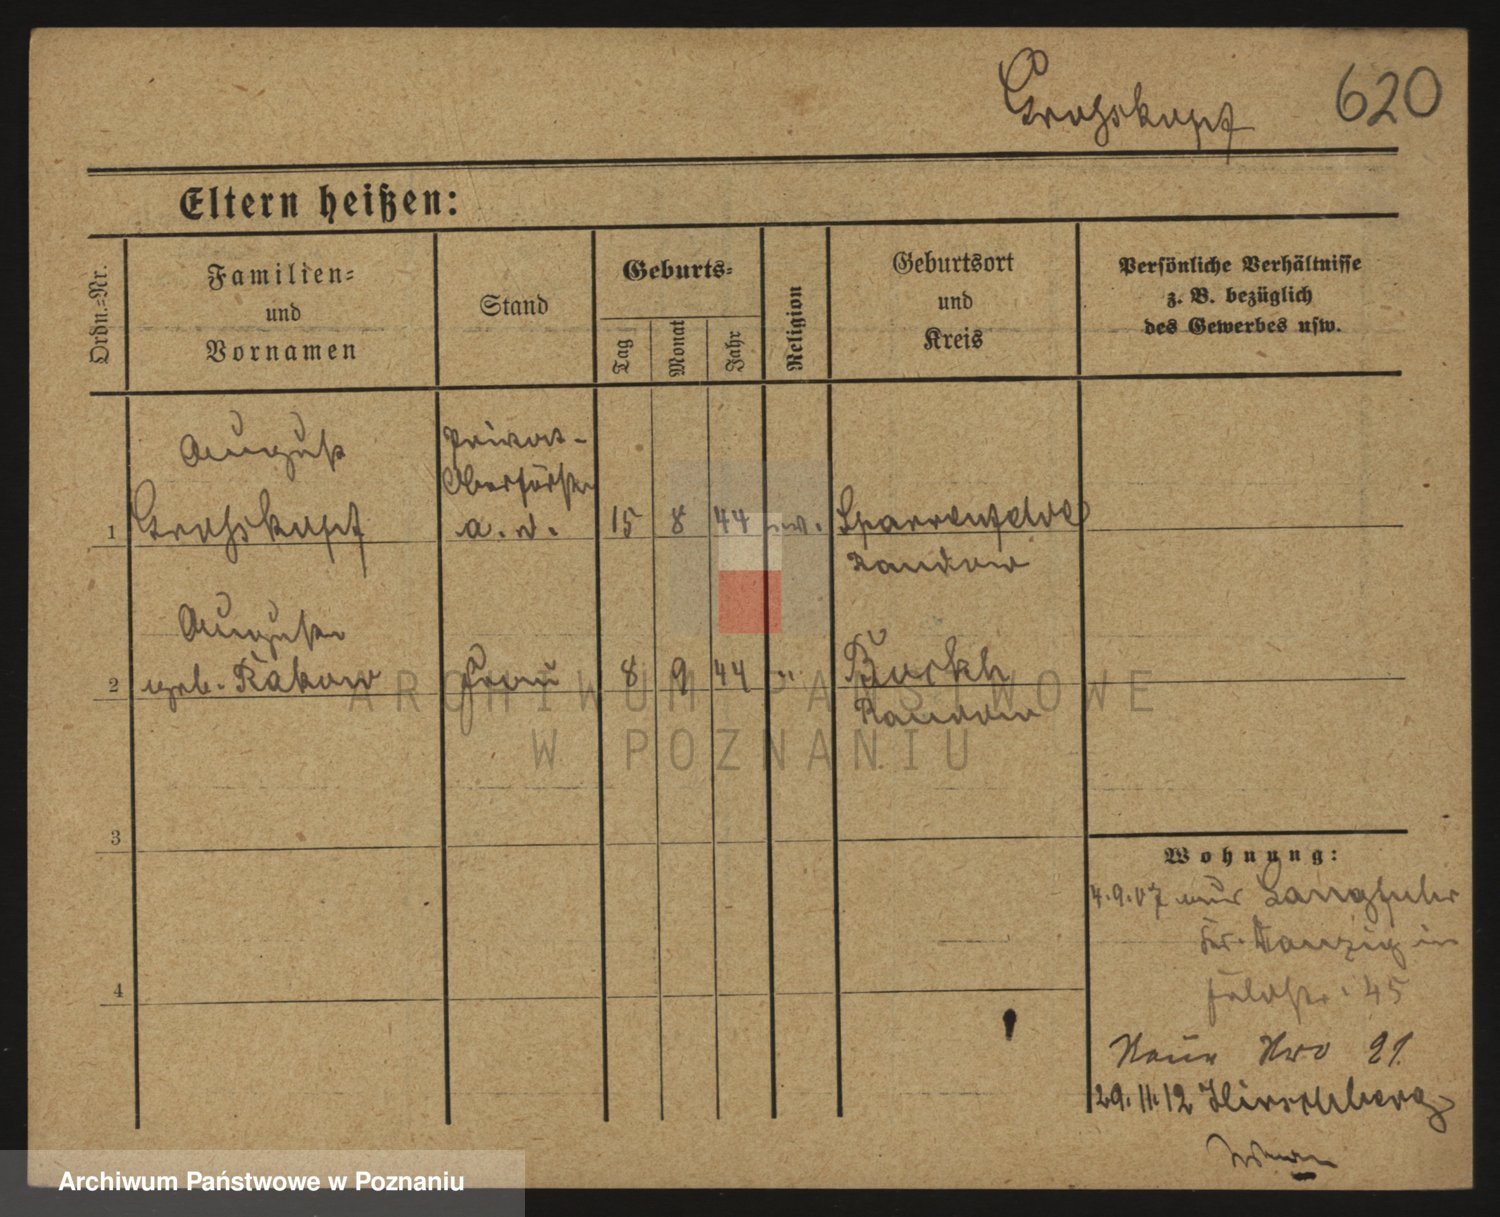 Grohskopf 620
Eltern heißen:
Ordn.-Nr.
Familien-
und
Vornamen
Stand
Geburts-
Tag
Monat
Jahr
Religion
Geburtsort
und
Kreis
Persönliche Verhältnisse
z. B. bezüglich
des Gewerbes usw.
August
Privat-
Oberförster
1 Grohskopf a. D. 15 8 44 ew. Sparrenfelde
Randow
Auguste
2 geb. Rakow Frau 8 9 44 " Buckh
Randow
ARCHIWUM PAŃSTWOWE
W POZNANIU
3
Wohnung:
4.9.07 nur Langfuhr
bei Danzig in
4
Feldstr. 45
Neue Nro 21.
29.11.12 Hirschberg
Archiwum Państwowe w Poznaniu